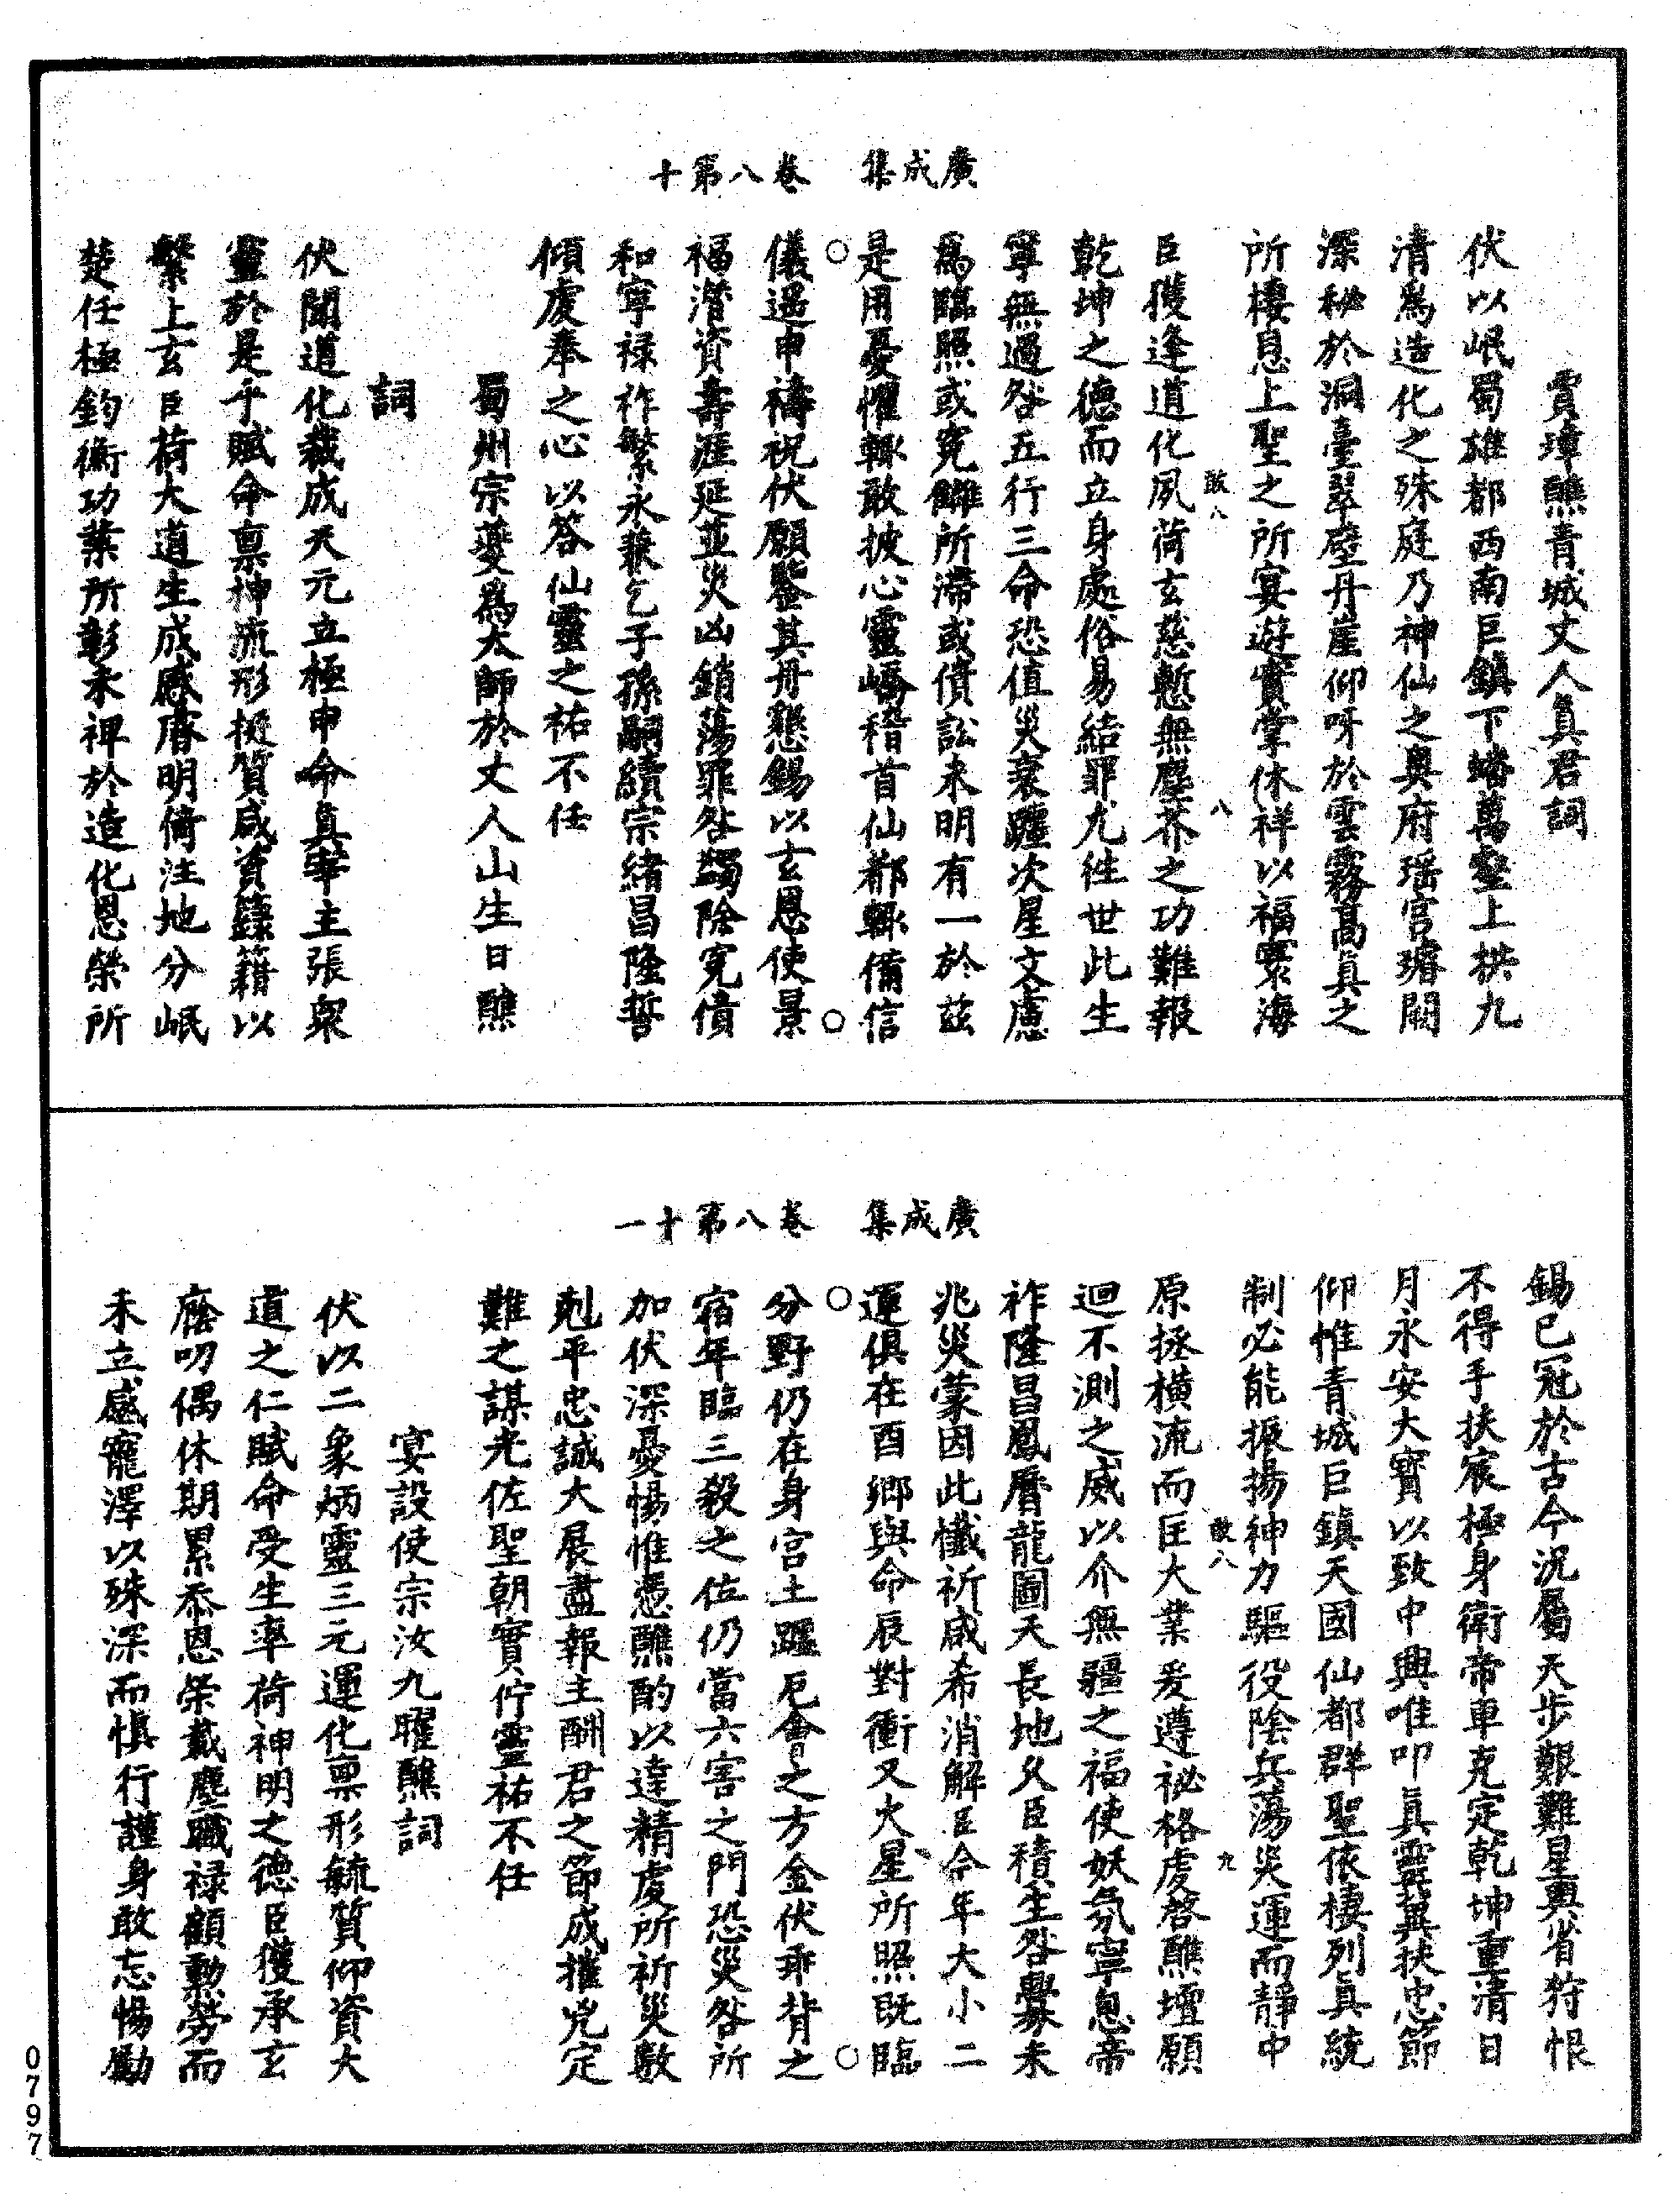 廣成集　卷八第十
賈璋醮青城丈人真君詞
伏以岷蜀雄都西南巨鎮下蟠萬壑上拱九
清爲造化之殊庭乃神仙之奧府瑤宮瓊闕
深秘於洞臺翠壁丹崖仰呀於雲霧高真之
所棲息上聖之所宴遊實掌休祥以福寰海
敢八　八
臣獲逢道化夙荷玄慈慙無塵芥之功難報
乾坤之德而立身處俗易結罪尤往世此生
寧無過咎五行三命恐值災衰躔次星文慮
爲臨照或寃讎所滯或債訟未明有一於茲
是用憂懼輒敢披心靈嶠稽首仙都輒備信
儀遇申禱祝伏願鑒其丹懇錫以玄恩使景
福潛資壽涯延益災凶銷蕩罪咎蠲除寃債
和寧祿祚繁永兼乞子孫嗣續宗緒昌隆誓
傾虔奉之心以答仙靈之祐不任
蜀州宗夔爲太師於丈人山生日醮
詞
伏聞道化裁成天元立極申命真宰主張衆
靈於是乎賦命稟神流形挺質咸資籙籍以
繫上玄臣荷大道生成感睿明倚注地分岷
楚任極鈞衡功業所彰未裨於造化恩榮所
廣成集　卷八第十一
錫已冠於古今況屬天步艱難星輿省狩恨
不得手扶宸極身衛帝車克定乾坤重清日
月永安大寶以致中興唯叩真靈冀扶忠節
仰惟青城巨鎮天國仙都群聖依棲列真統
制必能振揚神力驅役陰兵蕩災運而靜中
敢八　九
原拯橫流而匡大業爰遵祕格虔啓醮壇願
迴不測之威以介無疆之福使妖氛寧息帝
祚隆昌鳳曆龍圖天長地久臣積生咎釁未
兆災蒙因此懺祈咸希消解臣今年大小二
運俱在酉鄉與命辰對衝又火星所照既臨
分野仍在身宮土躔厄會之方金伏乖背之
宿年臨三殺之位仍當六害之門恐災咎所
加伏深憂惕惟憑醮酌以達精虔所祈災數
剋平忠誠大展盡報主酬君之節成摧兇定
難之謀光佐聖朝實佇靈祐不任
宴設使宗汝九曜醮詞
伏以二象炳靈三元運化稟形毓質仰資大
道之仁賦命受生率荷神明之德臣獲承玄
廕叨偶休期累忝恩榮戴塵職祿顧勲勞而
未立感寵澤以殊深而慎行謹身敢忘惕勵
0797